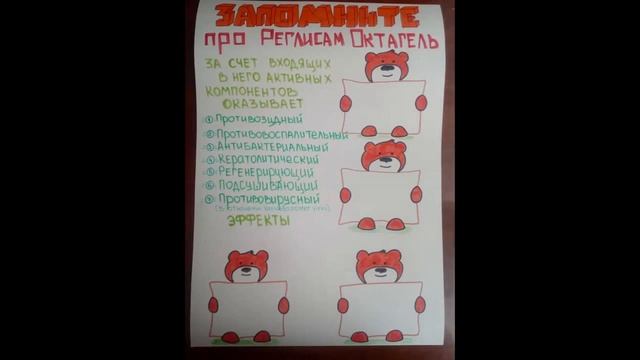 ЗАПОМНИТЕ
ПРО РЕГЛИСАМ ОКТАГЕЛЬ
ЗА СЧЕТ ВХОДЯЩИХ
В НЕГО АКТИВНЫХ
КОМПОНЕНТОВ
ОКАЗЫВАЕТ
① ПРОТИВОЗУДНЫЙ
② ПРОТИВОВОСПАЛИТЕЛЬНЫЙ
③ АНТИБАКТЕРИАЛЬНЫЙ
④ КЕРАТОЛИТИЧЕСКИЙ
⑤ РЕГЕНЕРИРУЮЩИЙ
⑥ ПОДСУШИВАЮЩИЙ
⑦ ПРОТИВОВИРУСНЫЙ
(В ОТНОШЕНИИ
ЭФФЕКТЫ